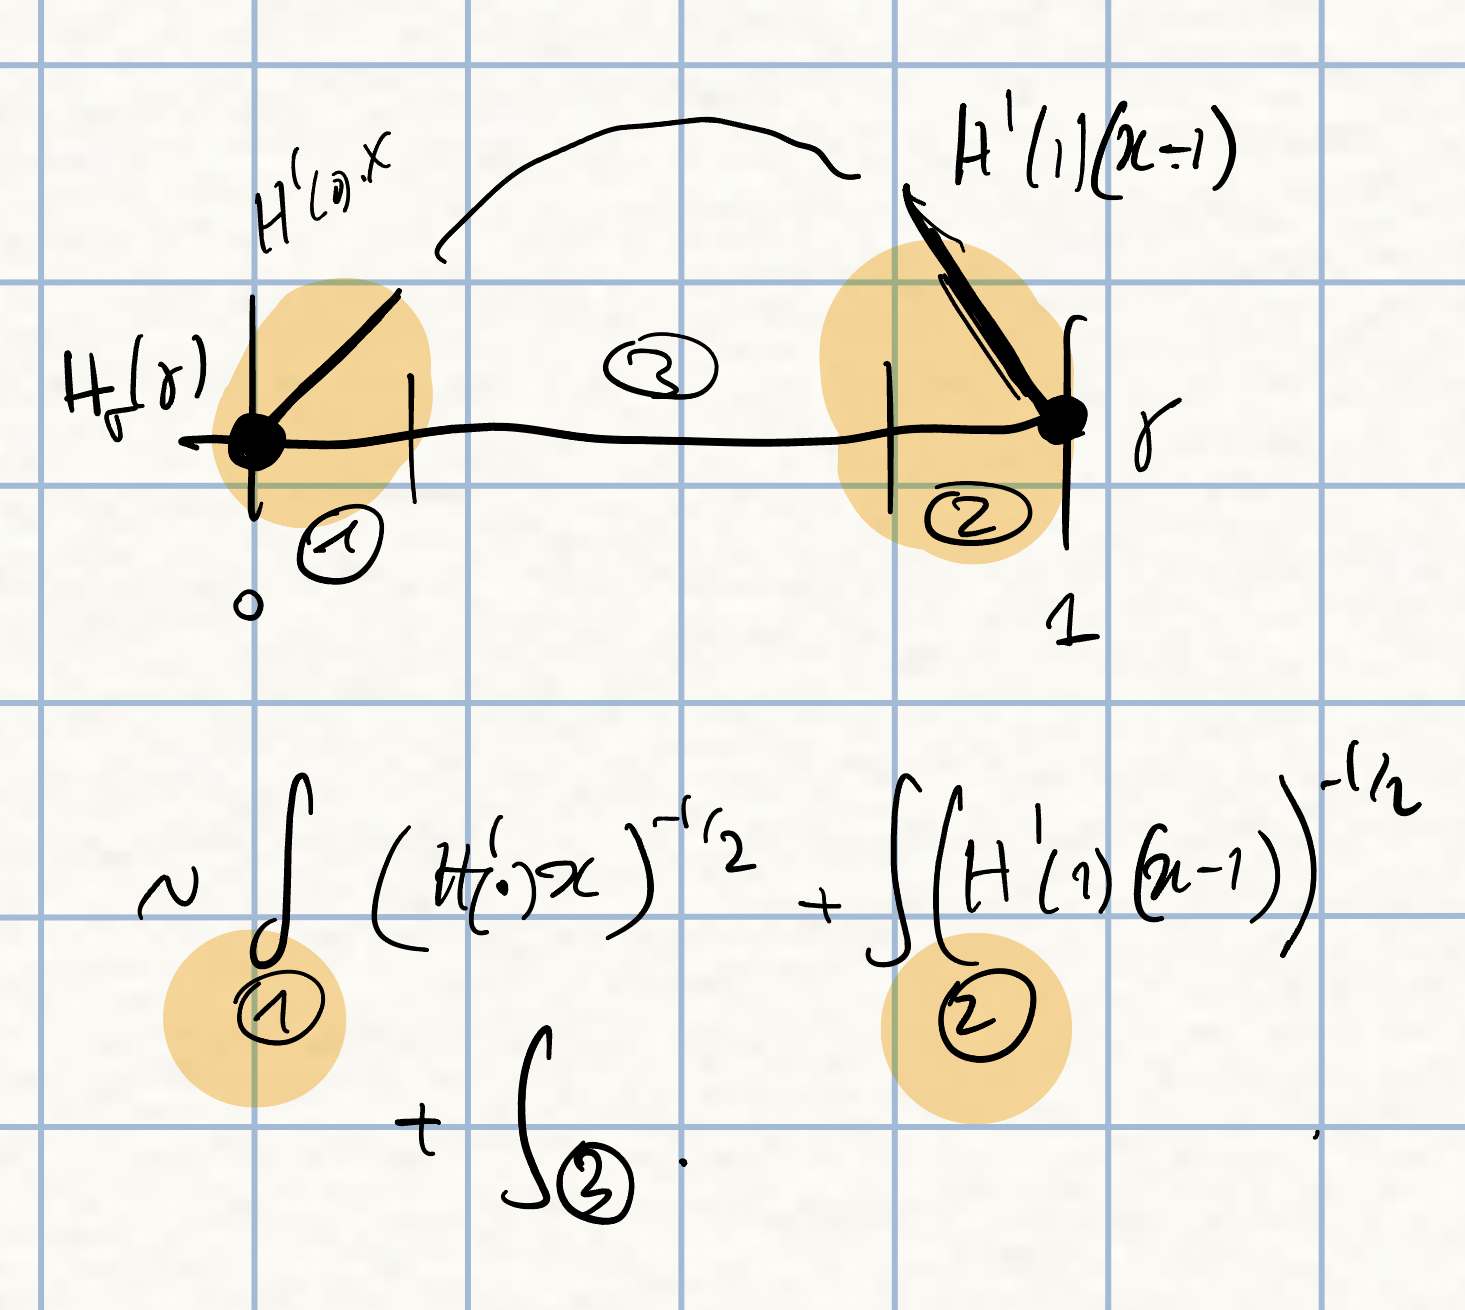 H'(1)(x-1)
H'(0).x
H_σ(γ)
3
γ
1 2
0 1
~ ∫_① (H'(·)x)^{-1/2} + ∫_② (H'(1)(x-1))^{-1/2}
+ ∫_③ .